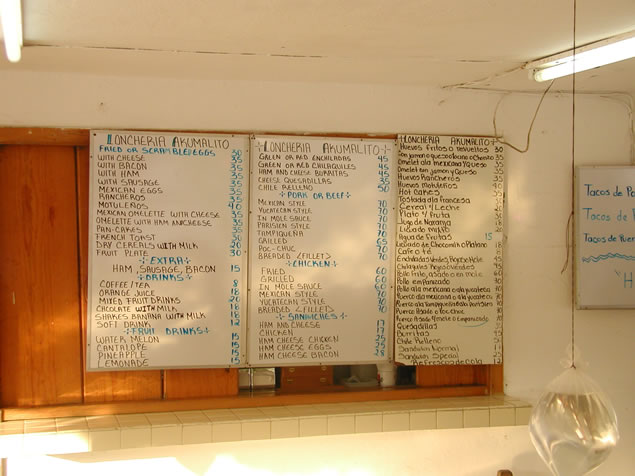 LONCHERIA AKUMALITO
FRIED OR SCRAMBLED EGGS 30
WITH CHEESE 35
WITH BACON 35
WITH HAM 35
WITH SAUSAGE 35
MEXICAN EGGS 35
RANCHEROS 35
MOTULEÑOS 40
MEXICAN OMELETTE WITH CHEESE 35
OMELETTE WITH HAM AND CHEESE 35
PAN-CAKES 35
FRENCH TOAST 30
DRY CEREALS WITH MILK 20
FRUIT PLATE 30
EXTRA
HAM, SAUSAGE, BACON 15
DRINKS
COFFEE/TEA 8
ORANGE JUICE 18
MIXED FRUIT DRINKS 20
CHOCOLATE WITH MILK 18
SHAKES BANANA WITH MILK 18
SOFT DRINK 12
FRUIT DRINKS
WATER MELON 15
CANTALOPE 15
PINEAPPLE 15
LEMONADE 15
LONCHERIA AKUMALITO
GREEN OR RED ENCHILADAS 45
GREEN OR RED CHILAQUILES 45
HAM AND CHEESE BURRITAS 45
CHEESE QUESADILLAS 35
CHILE RELLENO 50
PORK OR BEEF
MEXICAN STYLE 70
YUCATECAN STYLE 70
IN MOLE SAUCE 70
PARISIEN STYLE 70
TAMPIQUEÑA 70
GRILLED 65
POC-CHUC 70
BREADED (FILLETS) 70
CHICKEN
FRIED 60
GRILLED 60
IN MOLE SAUCE 60
MEXICAN STYLE 70
YUCATECAN STYLE 70
BREADED (FILLETS 70
SANDWICHES
HAM AND CHEESE 17
CHICKEN 17
HAM CHEESE CHICKEN 25
HAM CHEESE EGGS 25
HAM CHEESE BACON 28
LONCHERIA AKUMALITO
Huevos fritos o revueltos 30
Con jamon o queso
Omelet a la mexicana y Queso
Omelet con jamon y Queso
Huevos Rancheros
Huevos Motuleños 40
Hot Cakes
Tostada a la francesa
Cereal y Leche
Plato y fruta
Jugo de Naranja
Licuado mixto
Agua de frutas 15
Licuado de Chocomil o Platano
Cafe o té
Enchiladas Verdes, Rojas o Mole
Chilaquiles Rojos o Verdes
Pollo frito, asado o en mole
Pollo empanizado
Pollo a la mexicana o
Puerco a la mexicana o
Puerco a la Tampiqueña
Puerco Asado o Poc Chuc
Quesadillas
Burritas
Chile Relleno
Sandwich Normal
Sandwich Special
Refrescos de Cola 12
Tacos de
Tacos de
Tacos de